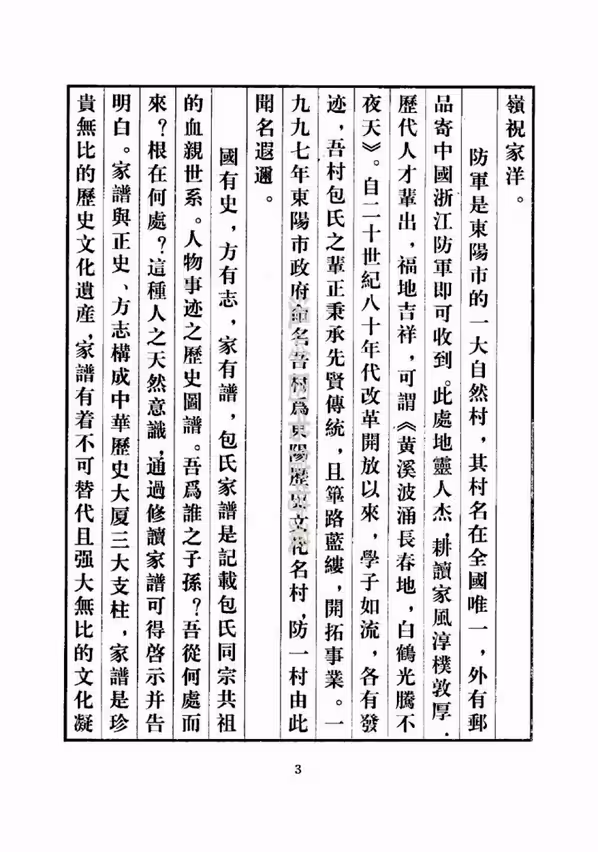 嶺祝家洋。
防軍是東陽市的一大自然村，其村名在全國唯一，外有郵
品寄中國浙江防軍即可收到。此處地靈人杰，耕讀家風淳樸敦厚．
歷代人才輩出，福地吉祥，可謂《黃溪波涌長春地，白鶴光騰不
夜天》。自二十世紀八十年代改革開放以來，學子如流，各有發
迹，吾村包氏之輩正秉承先賢傳統，且篳路藍縷，開拓事業。一
九九七年東陽市政府命名吾村爲東陽歷史文化名村，防一村由此
聞名遐邇。
國有史，方有志，家有譜，包氏家譜是記載包氏同宗共祖
的血親世系。人物事迹之歷史圖譜。吾爲誰之子孫？吾從何處而
來？根在何處？這種人之天然意識，通過修讀家譜可得啓示并告
明白。家譜與正史、方志構成中華歷史大厦三大支柱，家譜是珍
貴無比的歷史文化遺産，家譜有着不可替代且强大無比的文化凝
3